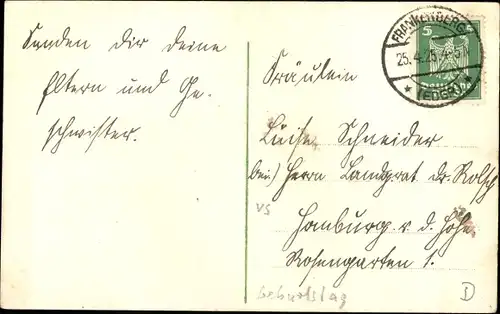 Senden dir deine
Eltern und Ge-
schwister.
FRANKENBERG
25.4.25
* (EDER) *
5
Fräulein
Luise Schneider
bei) Herrn Landgrat Dr. Rolsch
Homburg v. d. Höhe
Rosengarten 1.
VS
Geburtstag
D